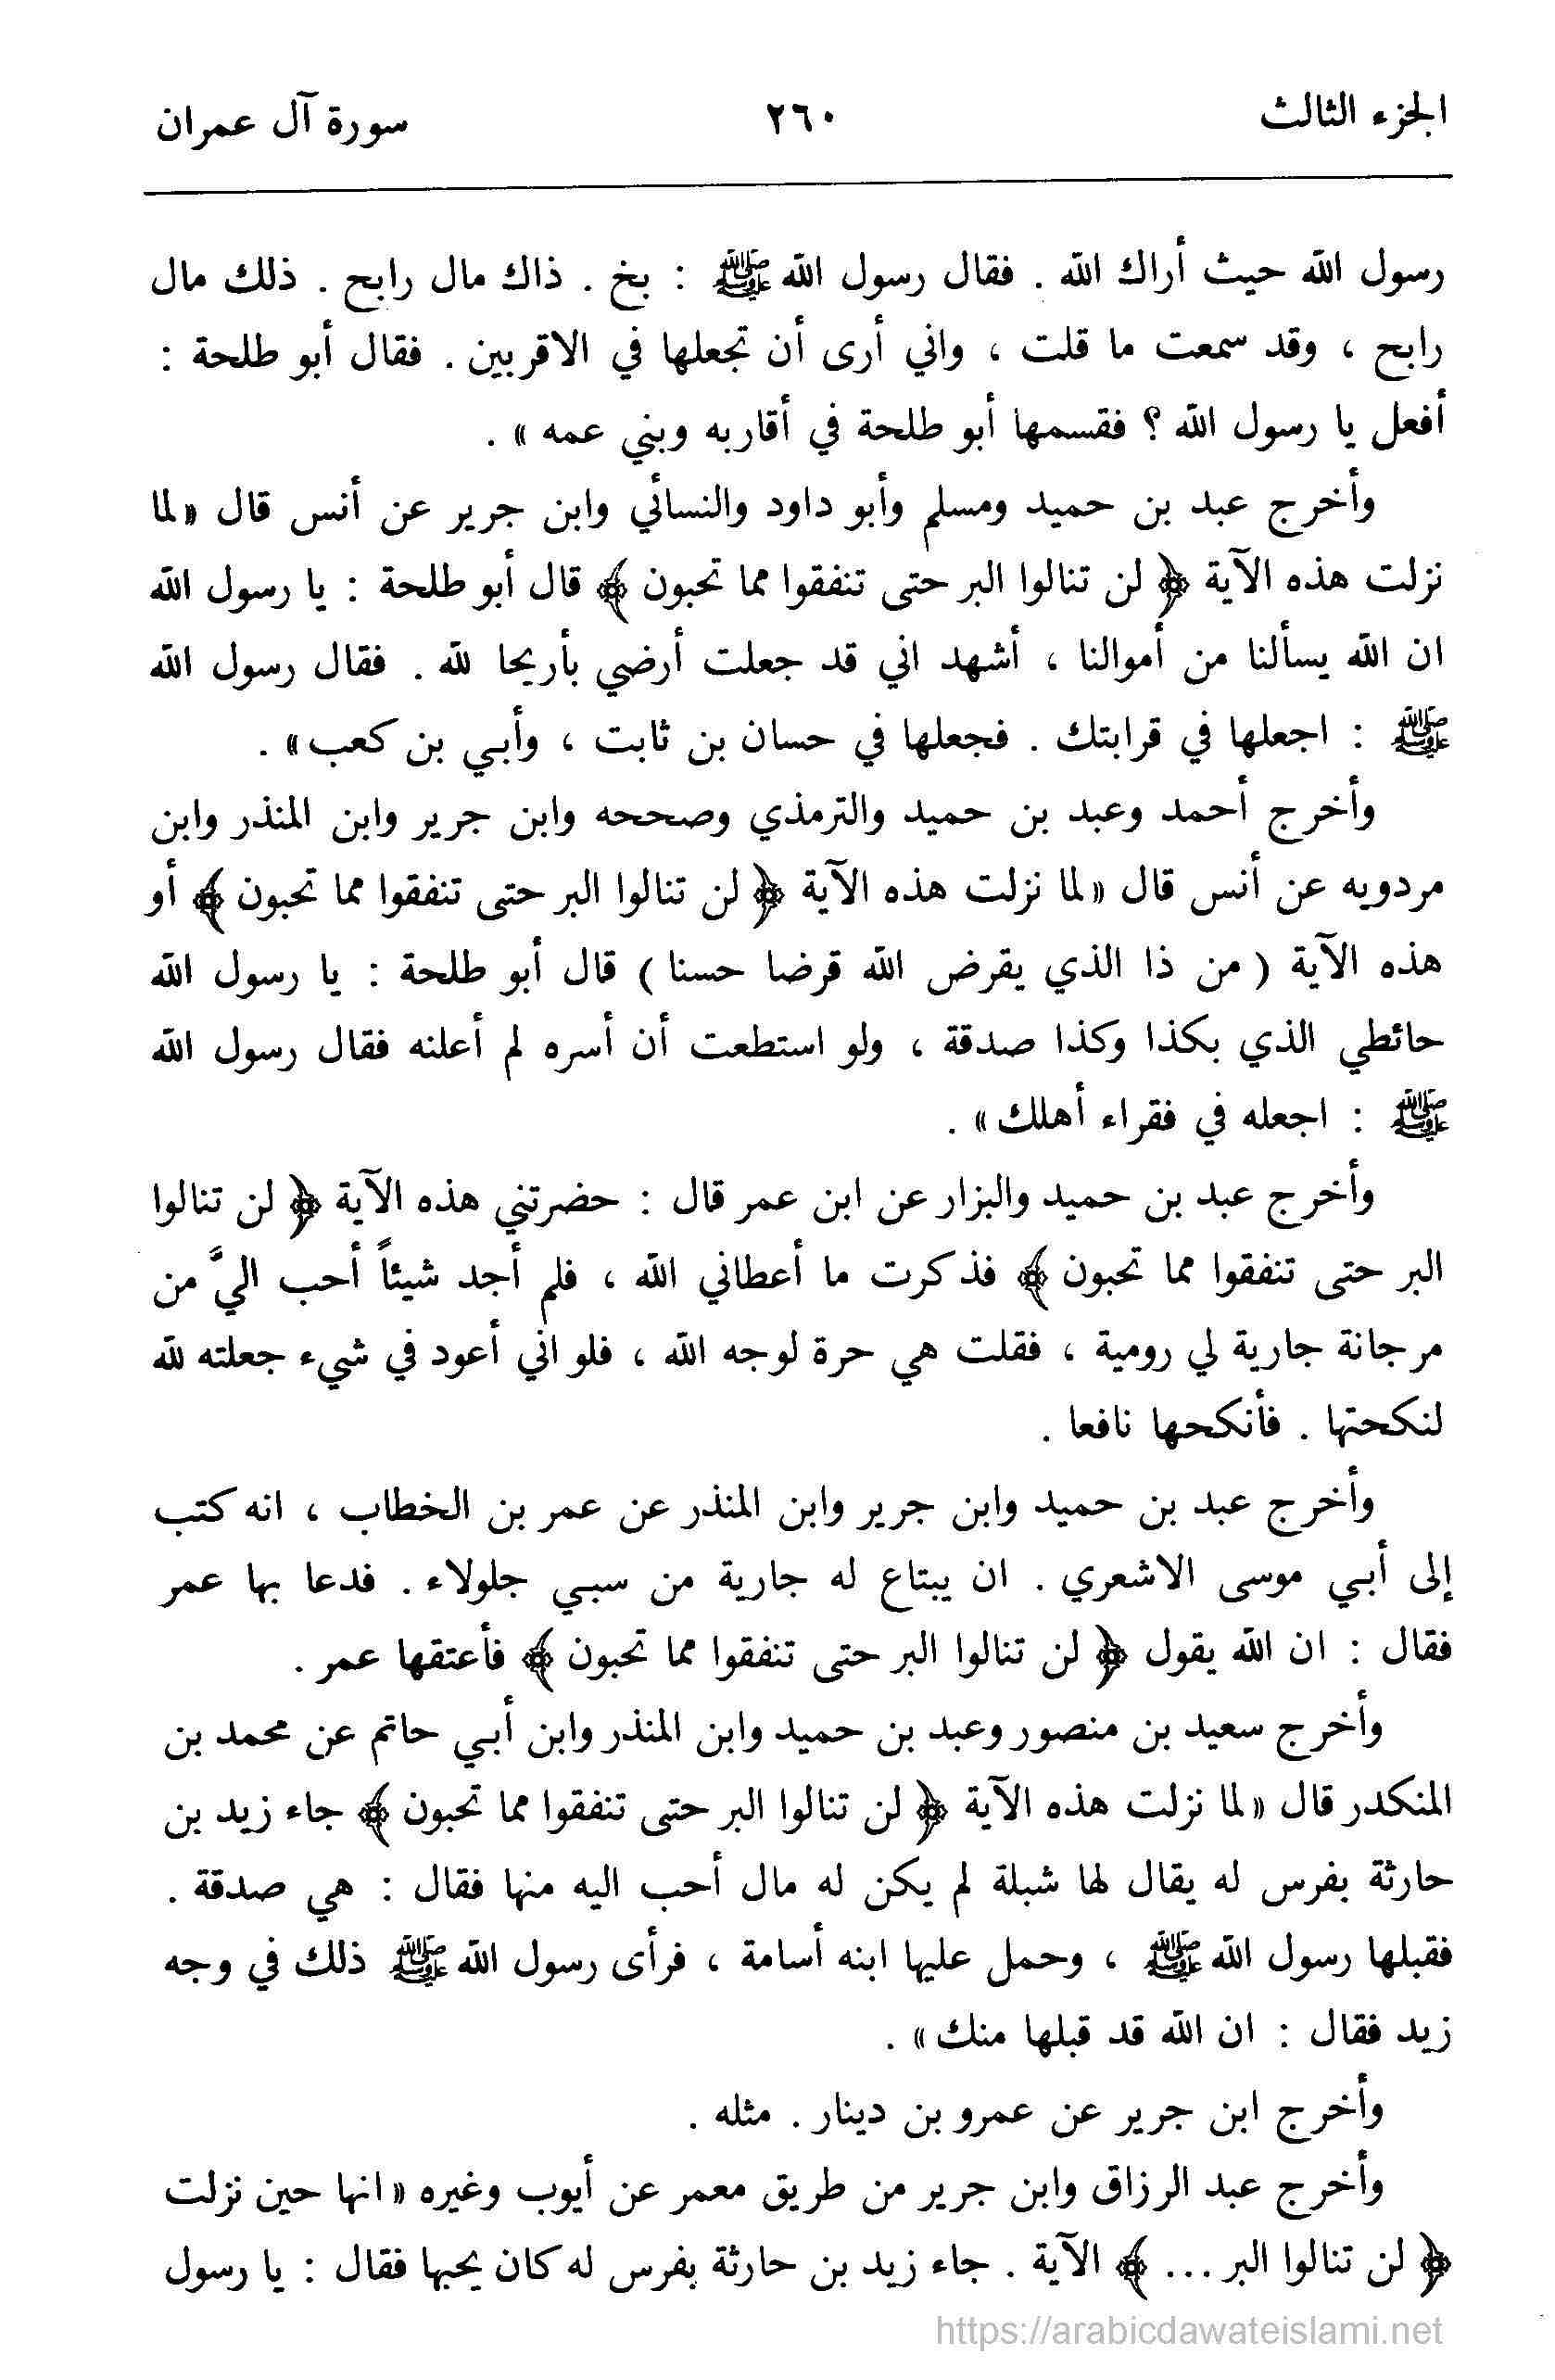 الجزء الثالث ٢٦٠ سورة آل عمران
رسول الله حيث أراك الله . فقال رسول الله ﷺ : بخ . ذاك مال رابح . ذلك مال
رابح ، وقد سمعت ما قلت ، واني أرى أن تجعلها في الاقربين . فقال أبو طلحة :
أفعل يا رسول الله ؟ فقسمها أبو طلحة في أقاربه وبني عمه » .
وأخرج عبد بن حميد ومسلم وأبو داود والنسائي وابن جرير عن أنس قال « لما
نزلت هذه الآية ﴿ لن تنالوا البر حتى تنفقوا مما تحبون ﴾ قال أبو طلحة : يا رسول الله
ان الله يسألنا من أموالنا ، أشهد اني قد جعلت أرضي بأريحا لله . فقال رسول الله
ﷺ : اجعلها في قرابتك . فجعلها في حسان بن ثابت ، وأبي بن كعب » .
وأخرج أحمد وعبد بن حميد والترمذي وصححه وابن جرير وابن المنذر وابن
مردويه عن أنس قال « لما نزلت هذه الآية ﴿ لن تنالوا البر حتى تنفقوا مما تحبون ﴾ أو
هذه الآية ( من ذا الذي يقرض الله قرضا حسنا ) قال أبو طلحة : يا رسول الله
حائطي الذي بكذا وكذا صدقة ، ولو استطعت أن أسره لم أعلنه فقال رسول الله
ﷺ : اجعله في فقراء أهلك » .
وأخرج عبد بن حميد والبزار عن ابن عمر قال : حضرتني هذه الآية ﴿ لن تنالوا
البر حتى تنفقوا مما تحبون ﴾ فذكرت ما أعطاني الله ، فلم أجد شيئاً أحب اليَّ من
مرجانة جارية لي رومية ، فقلت هي حرة لوجه الله ، فلو اني أعود في شيء جعلته لله
لنكحتها . فأنكحها نافعا .
وأخرج عبد بن حميد وابن جرير وابن المنذر عن عمر بن الخطاب ، انه كتب
إلى أبي موسى الاشعري . ان يبتاع له جارية من سبي جلولاء . فدعا بها عمر
فقال : ان الله يقول ﴿ لن تنالوا البر حتى تنفقوا مما تحبون ﴾ فأعتقها عمر .
وأخرج سعيد بن منصور وعبد بن حميد وابن المنذر وابن أبي حاتم عن محمد بن
المنكدر قال « لما نزلت هذه الآية ﴿ لن تنالوا البر حتى تنفقوا مما تحبون ﴾ جاء زيد بن
حارثة بفرس له يقال لها شبلة لم يكن له مال أحب اليه منها فقال : هي صدقة .
فقبلها رسول الله ﷺ ، وحمل عليها ابنه أسامة ، فرأى رسول الله ﷺ ذلك في وجه
زيد فقال : ان الله قد قبلها منك » .
وأخرج ابن جرير عن عمرو بن دينار . مثله .
وأخرج عبد الرزاق وابن جرير من طريق معمر عن أيوب وغيره « انها حين نزلت
﴿ لن تنالوا البر ... ﴾ الآية . جاء زيد بن حارثة بفرس له كان يحبها فقال : يا رسول
https://arabicdawateislami.net